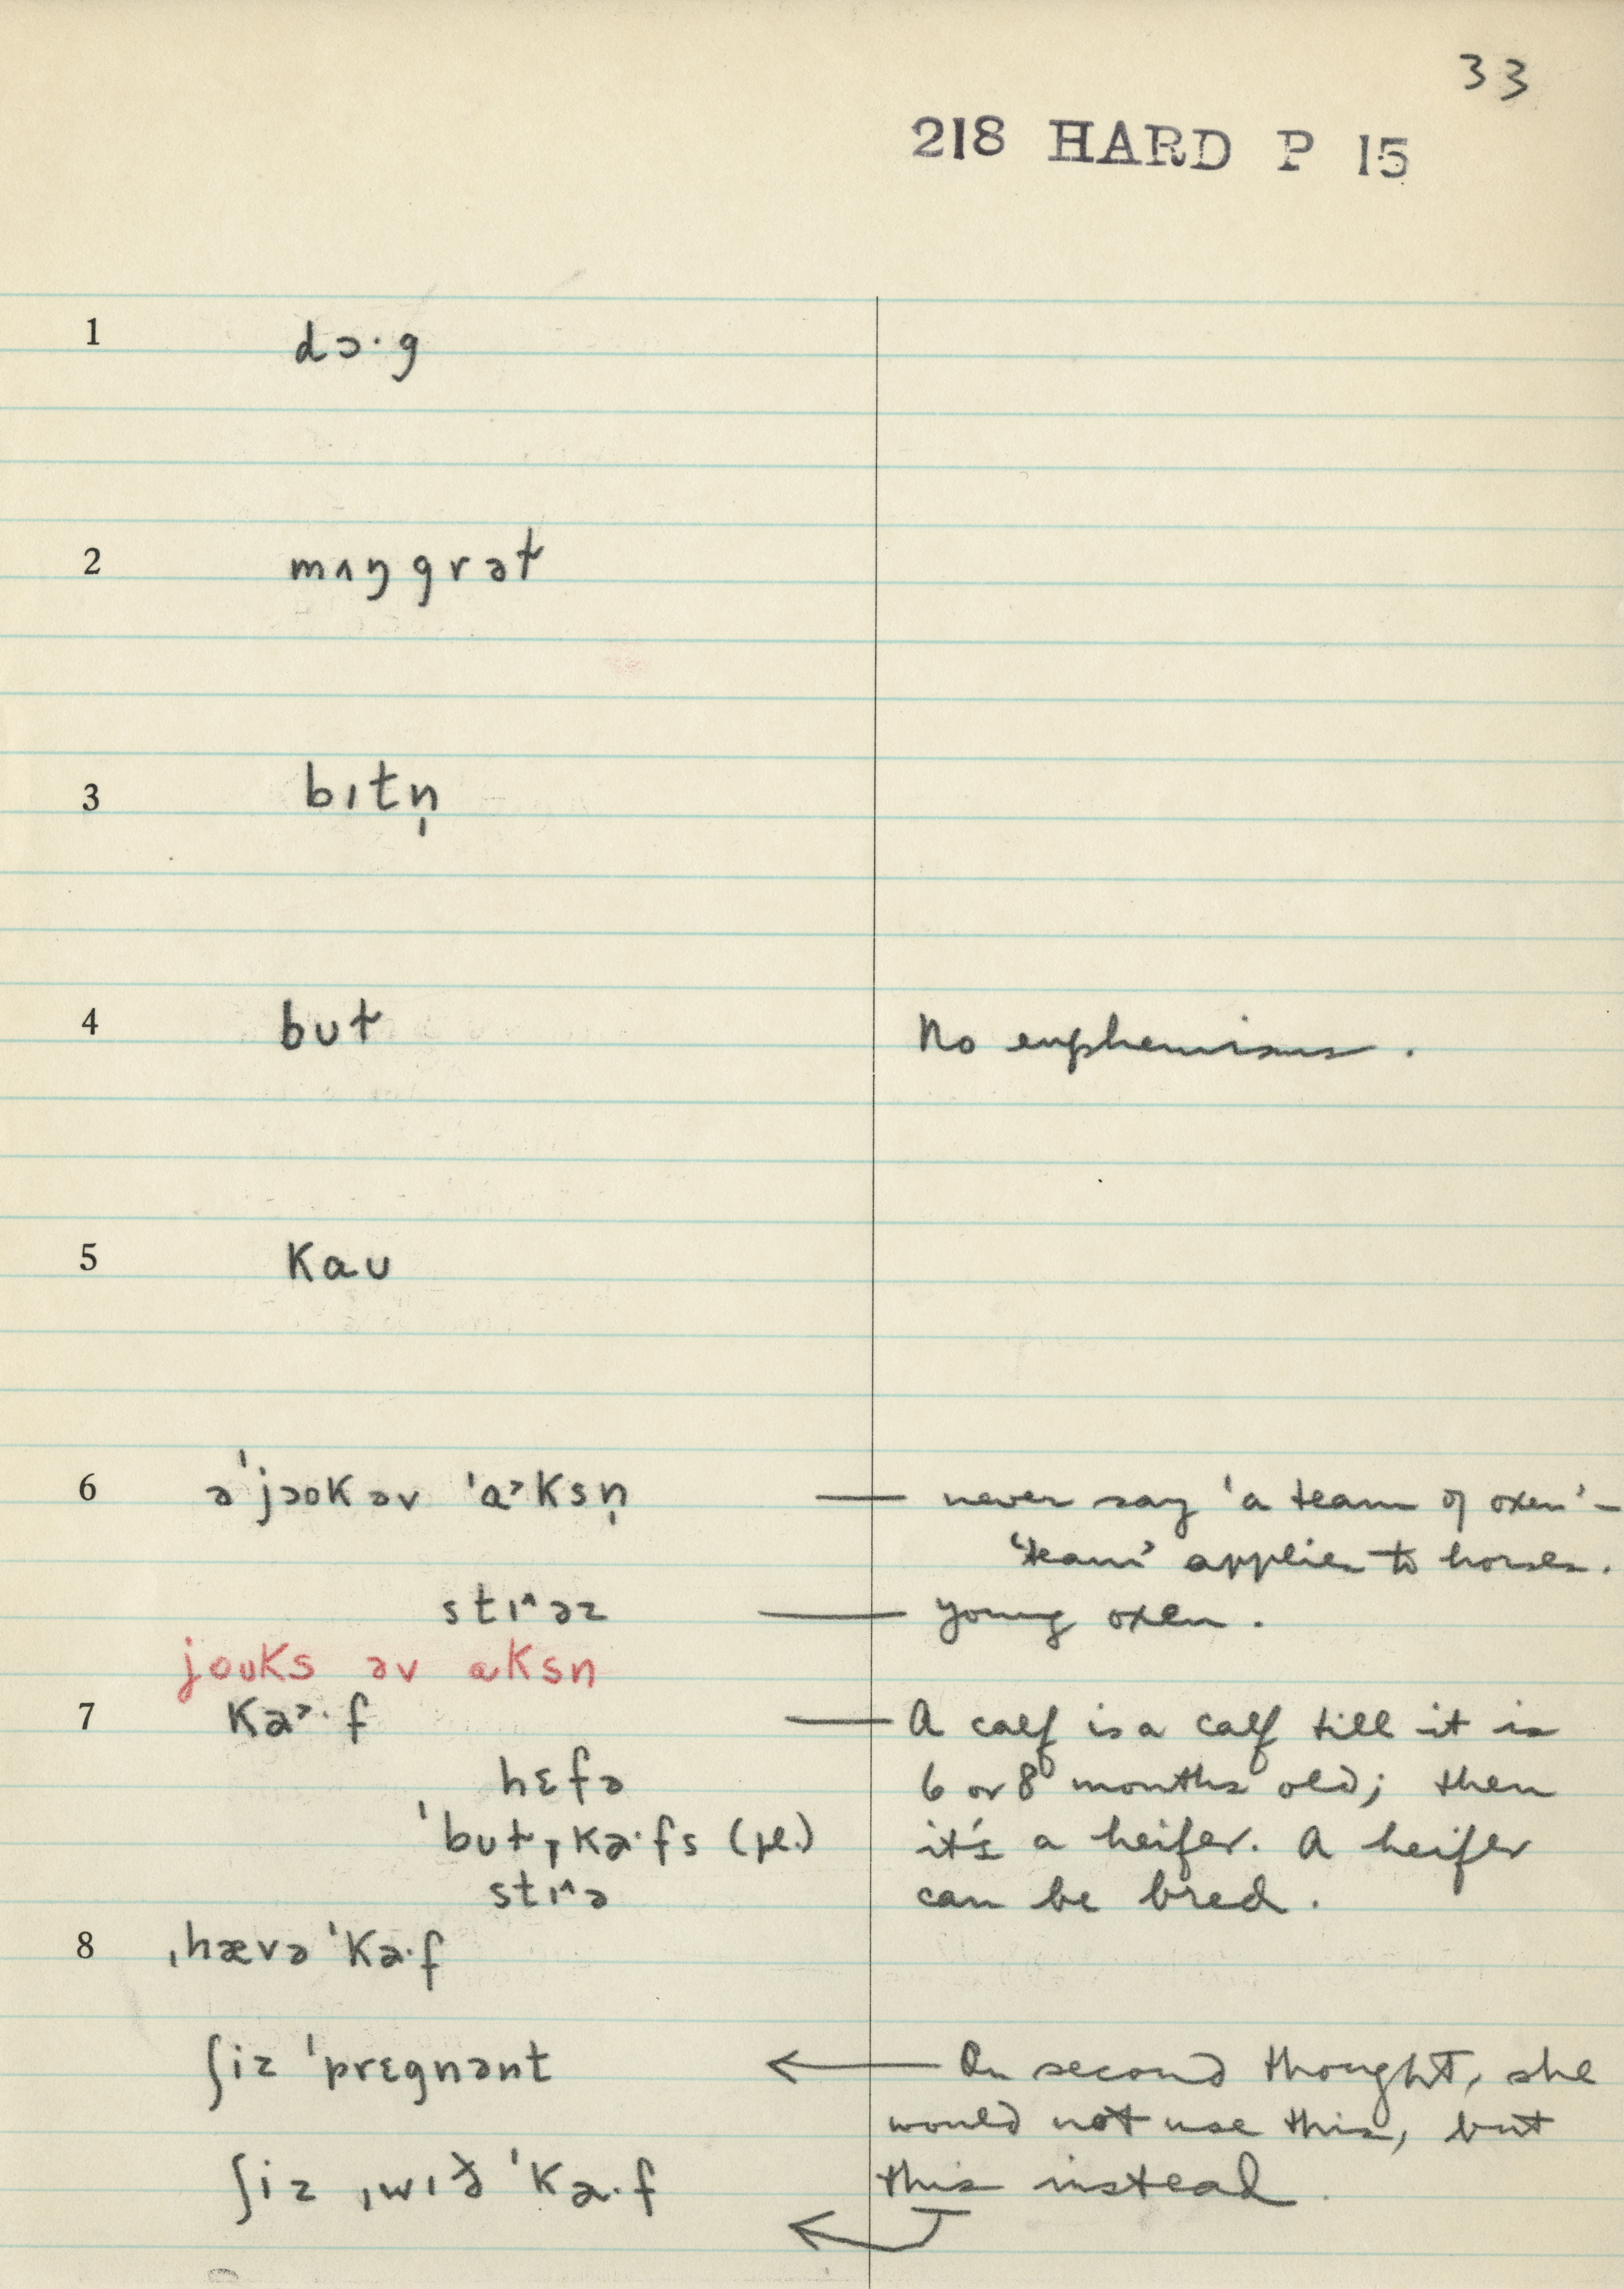 33
218 HARD P 15
1 dɔ·g
2 mʌŋgrəƚ
3 bɪtn̩
4 bʊƚ No euphemisms.
5 kaʊ
6 əˈjɔokəv ˈɑ˃ksn̩ — never say 'a team of oxen' –
'team' applies to horses.
stɪ^əz — young oxen.
joʊks əv ɑksn
7 ka˃·f — A calf is a calf till it is
hɛfə 6 or 8 months old; then
ˈbʊƚˌka·fs (pl.) it's a heifer. A heifer
stɪ^ə can be bred.
8 ˌhævə ˈka·f
ʃiz ˈprɛgnənt ← On second thought, she
would not use this, but
ʃiz ˌwɪð ˈka·f this instead.
←